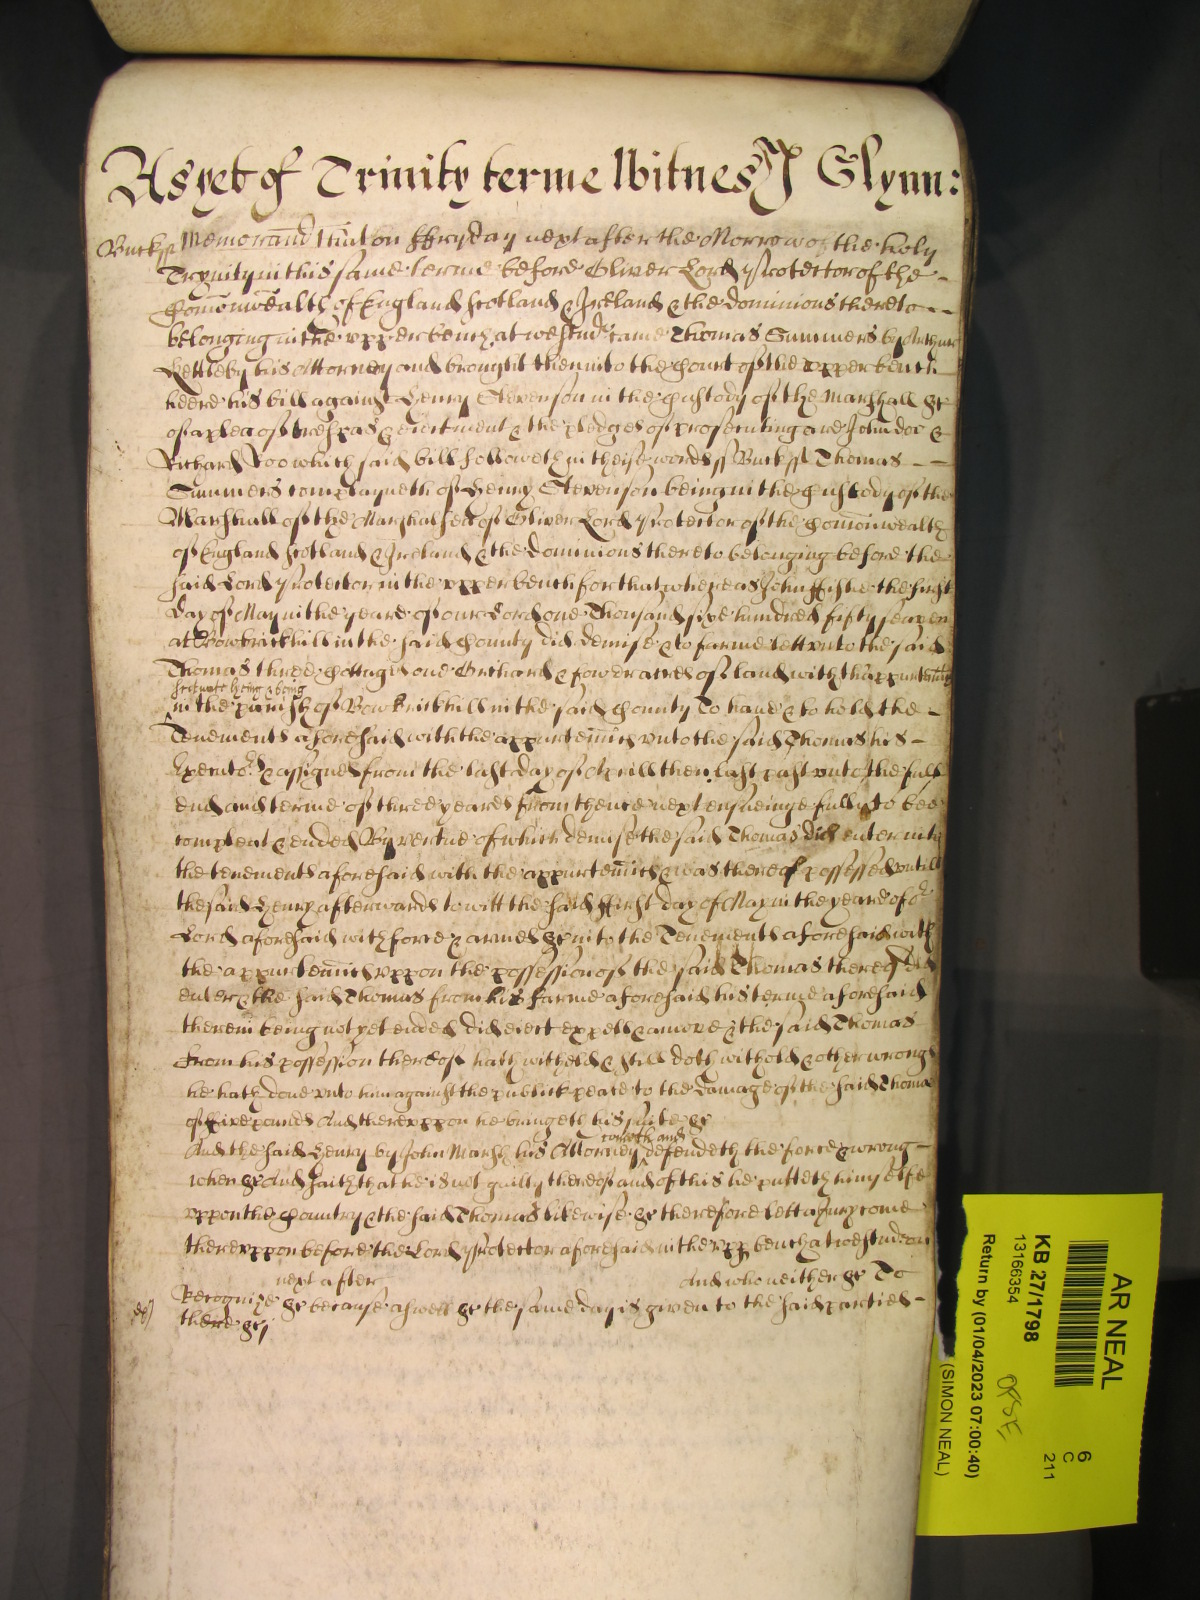 As yet of Trinity terme Witnes J Glynn:
Bucks ss Memorand that on ffryday next after the Morrow of the holy
Trynity in this same terme before Oliver Lord Protector of the -
Comonwealth of England Scotland & Ireland & the dominions thereto --
belonging in the upper bench at westmr came Thomas Summers by Arthure
Kettleby his Attorney and brought then into the Court of the upper bench
heere his bill against Henry Stevenson in the Custody of the Marshall &c
of a plea of trespas & eiectment & the pledges of prosecuting are John doe &
Richard Roo which said bill followeth in theise words ss Bucks ss Thomas --
Summers complayneth of Henry Stevenson being in the Custody of the
Marshall of the Marshalsea of Oliver Lord Protector of the Comonwealth
of England Scotland & Ireland & the dominions thereto belonging before the
said Lord Protector in the upper bench for that whereas John ffisher the first
day of May in the yeare of our Lord one Thousand sixe hundred fifty seaven
at Bowbrickhill in the said County did demise & to farme lett unto the said
Thomas three Cottages one Orchard & fower acres of land with thappurtenncs
scituate lying & being
in the parish of Bow Brickhill in the said County To have & to hold the -
Tenements aforesaid with the appurtenncs unto the said Thomas his -
Executors & assignes from the last day of Aprill then last past unto the full
end and terme of three yeares from thence next ensueinge fully to bee
compleat & ended By vertue of which demise the said Thomas did enter into
the tenements aforesaid with the appurtenncs & was thereof possessed untill
the said Henry afterwards to witt the said ffirst day of May in the yeare of or
Lord aforesaid with force & armes &c into the Tenements aforesaid with
the appurtenncs uppon the possession of the said Thomas thereof did
enter & the said Thomas from his farme aforesaid his terme aforesaid
therein being not yet ended did eiect expell & amove & the said Thomas
from his possession thereof hath witheld & still doth withold & other wrongs
he hath done unto him against the publick peace to the damage of the said Thomas
of five pounds And thereuppon he bringeth his suite &c
And the said Henry by John Marsh his Attorney cometh and defendeth the force & wrong -
when &c And saith that he is not guilty thereof and of this he putteth himselfe
uppon the Country & the said Thomas likewise &c therefore lett a Jury come
thereuppon before the Lord Protector aforesaid in the upp bench at westmr on
next after And who neither &c To
Recognize &c because aswell &c the same day is given to the said parties -
there &c
AR NEAL
KB 27/1798
13166354
Return by (01/04/2023 07:00:40)
(SIMON NEAL)
6
C
211